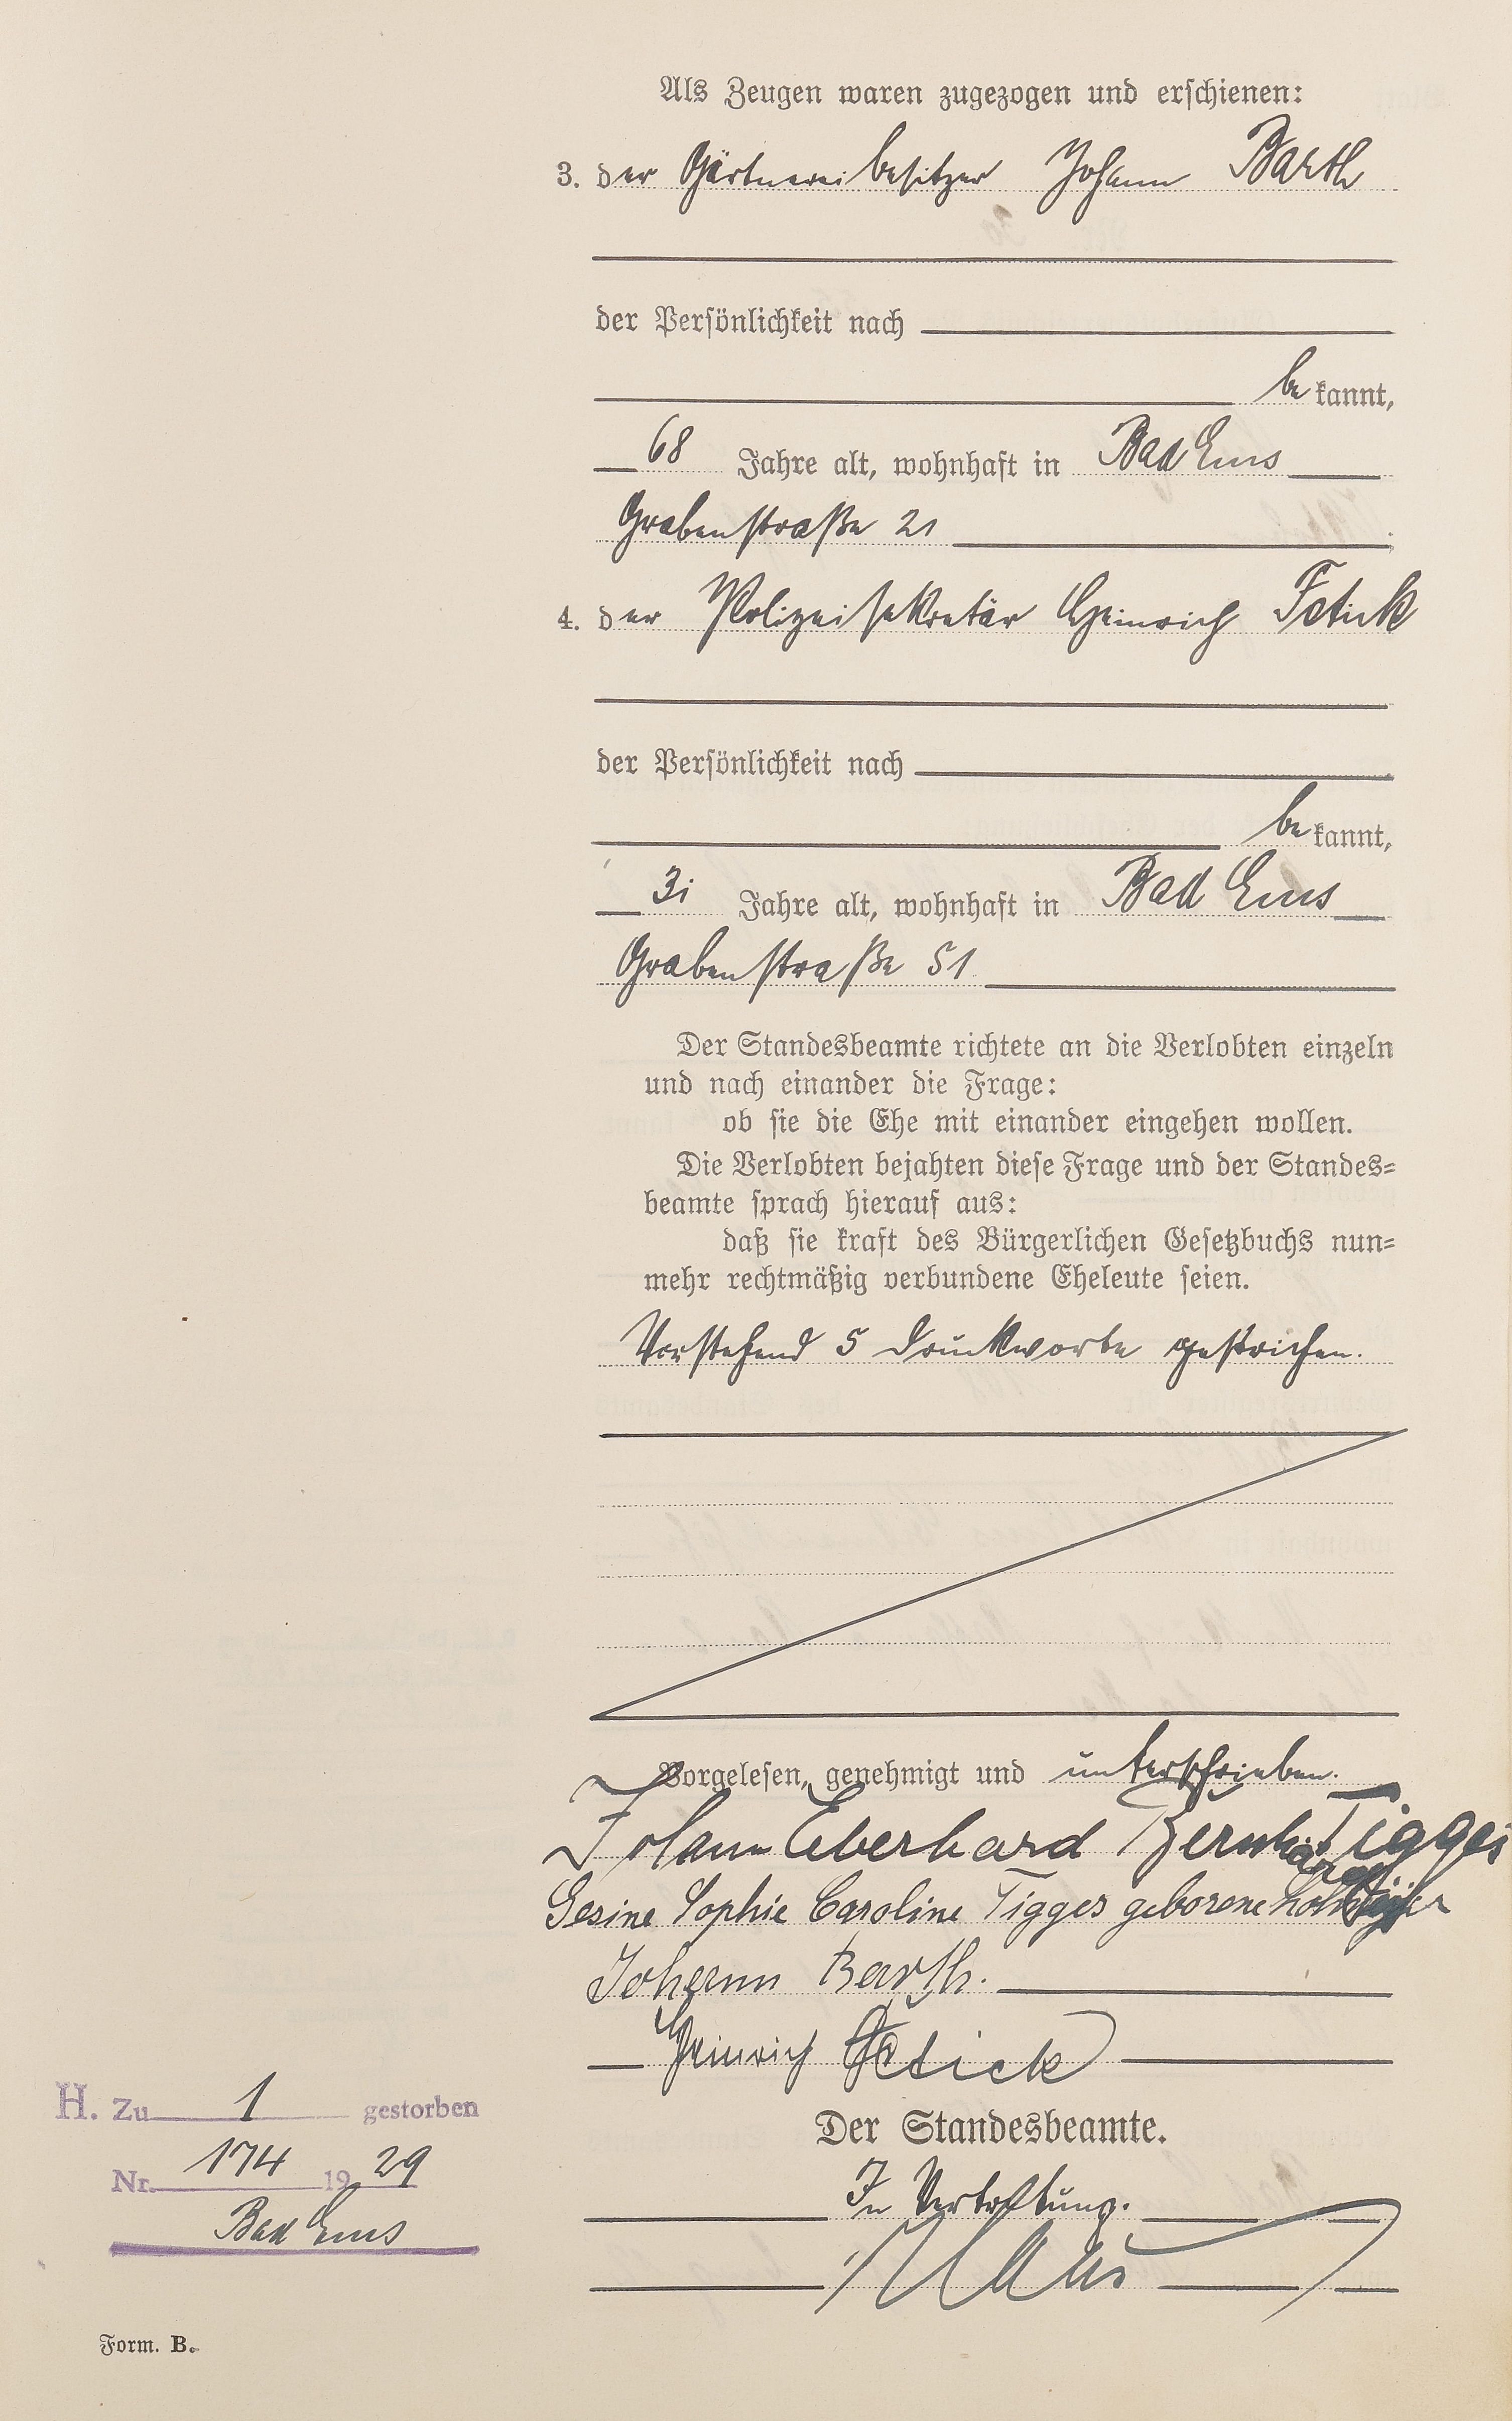 Als Zeugen waren zugezogen und erschienen:
3. der Gärtnereibesitzer Johann Barth
der Persönlichkeit nach
bekannt,
68 Jahre alt, wohnhaft in Bad Ems
Grabenstraße 21
4. der Polizeisekretär Heinrich Fetick
der Persönlichkeit nach
bekannt,
31 Jahre alt, wohnhaft in Bad Ems
Grabenstraße 51
Der Standesbeamte richtete an die Verlobten einzeln
und nach einander die Frage:
ob sie die Ehe mit einander eingehen wollen.
Die Verlobten bejahten diese Frage und der Standes=
beamte sprach hierauf aus:
daß sie kraft des Bürgerlichen Gesetzbuchs nun=
mehr rechtmäßig verbundene Eheleute seien.
Vorstehend 5 Druckworte gestrichen.
Vorgelesen, genehmigt und unterschrieben.
Johann Eberhard Bernhard Tigges
Gesine Sophie Caroline Tigges geborene
Johann Barth.
Heinrich Fetick
Der Standesbeamte.
In Vertretung.
H. Zu 1 gestorben
Nr. 174 1929
Bad Ems
Form. B.